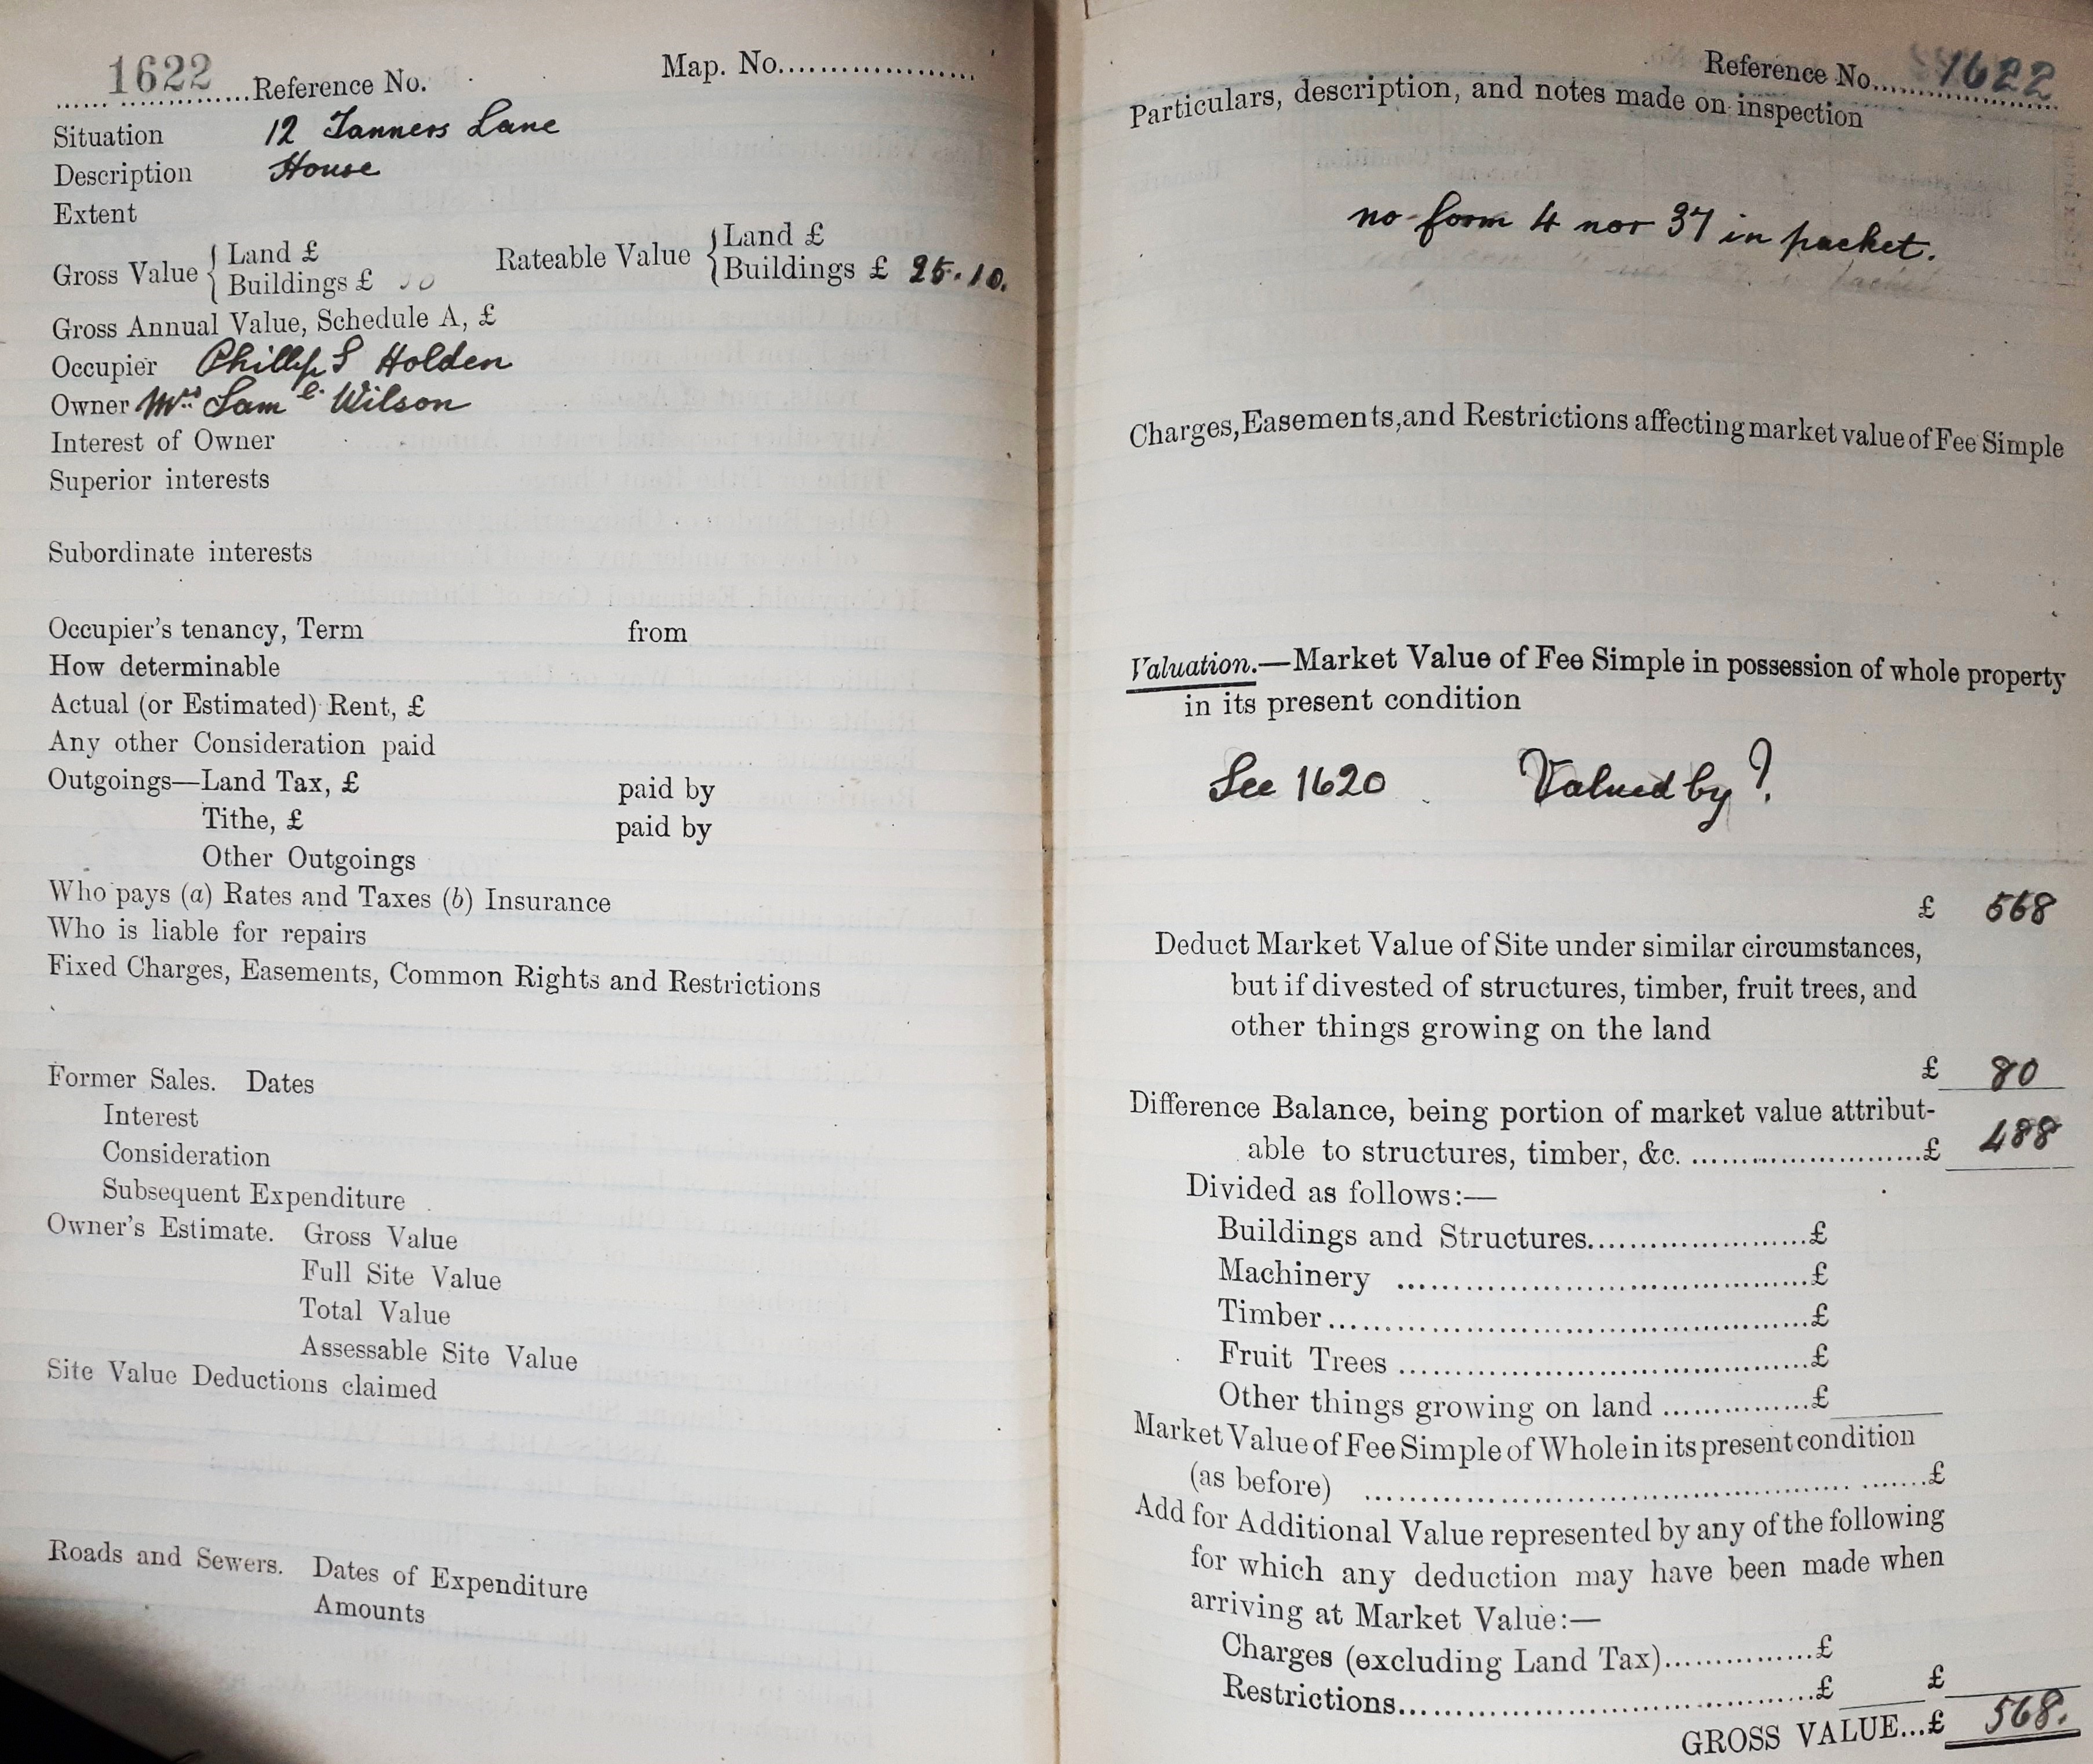 1622 Reference No. Map. No.
Situation 12 Tanners Lane
Description House
Extent
Gross Value { Land £ Rateable Value { Land £
Buildings £ Buildings £ 25.10.
Gross Annual Value, Schedule A, £
Occupier Phillip S Holden
Owner Mrs Sam e. Wilson
Interest of Owner
Superior interests
Subordinate interests
Occupier's tenancy, Term from
How determinable
Actual (or Estimated) Rent, £
Any other Consideration paid
Outgoings—Land Tax, £ paid by
Tithe, £ paid by
Other Outgoings
Who pays (a) Rates and Taxes (b) Insurance
Who is liable for repairs
Fixed Charges, Easements, Common Rights and Restrictions
Former Sales. Dates
Interest
Consideration
Subsequent Expenditure
Owner's Estimate. Gross Value
Full Site Value
Total Value
Assessable Site Value
Site Value Deductions claimed
Roads and Sewers. Dates of Expenditure
Amounts
Reference No. 1622
Particulars, description, and notes made on inspection
no form 4 nor 37 in packet.
Charges, Easements, and Restrictions affecting market value of Fee Simple
Valuation.—Market Value of Fee Simple in possession of whole property
in its present condition
See 1620 Valued by ?
£ 568
Deduct Market Value of Site under similar circumstances,
but if divested of structures, timber, fruit trees, and
other things growing on the land
£ 80
Difference Balance, being portion of market value attribut-
able to structures, timber, &c. £ 488
Divided as follows:—
Buildings and Structures £
Machinery £
Timber £
Fruit Trees £
Other things growing on land £
Market Value of Fee Simple of Whole in its present condition
(as before) £
Add for Additional Value represented by any of the following
for which any deduction may have been made when
arriving at Market Value:—
Charges (excluding Land Tax) £
Restrictions £ £
GROSS VALUE...£ 568.